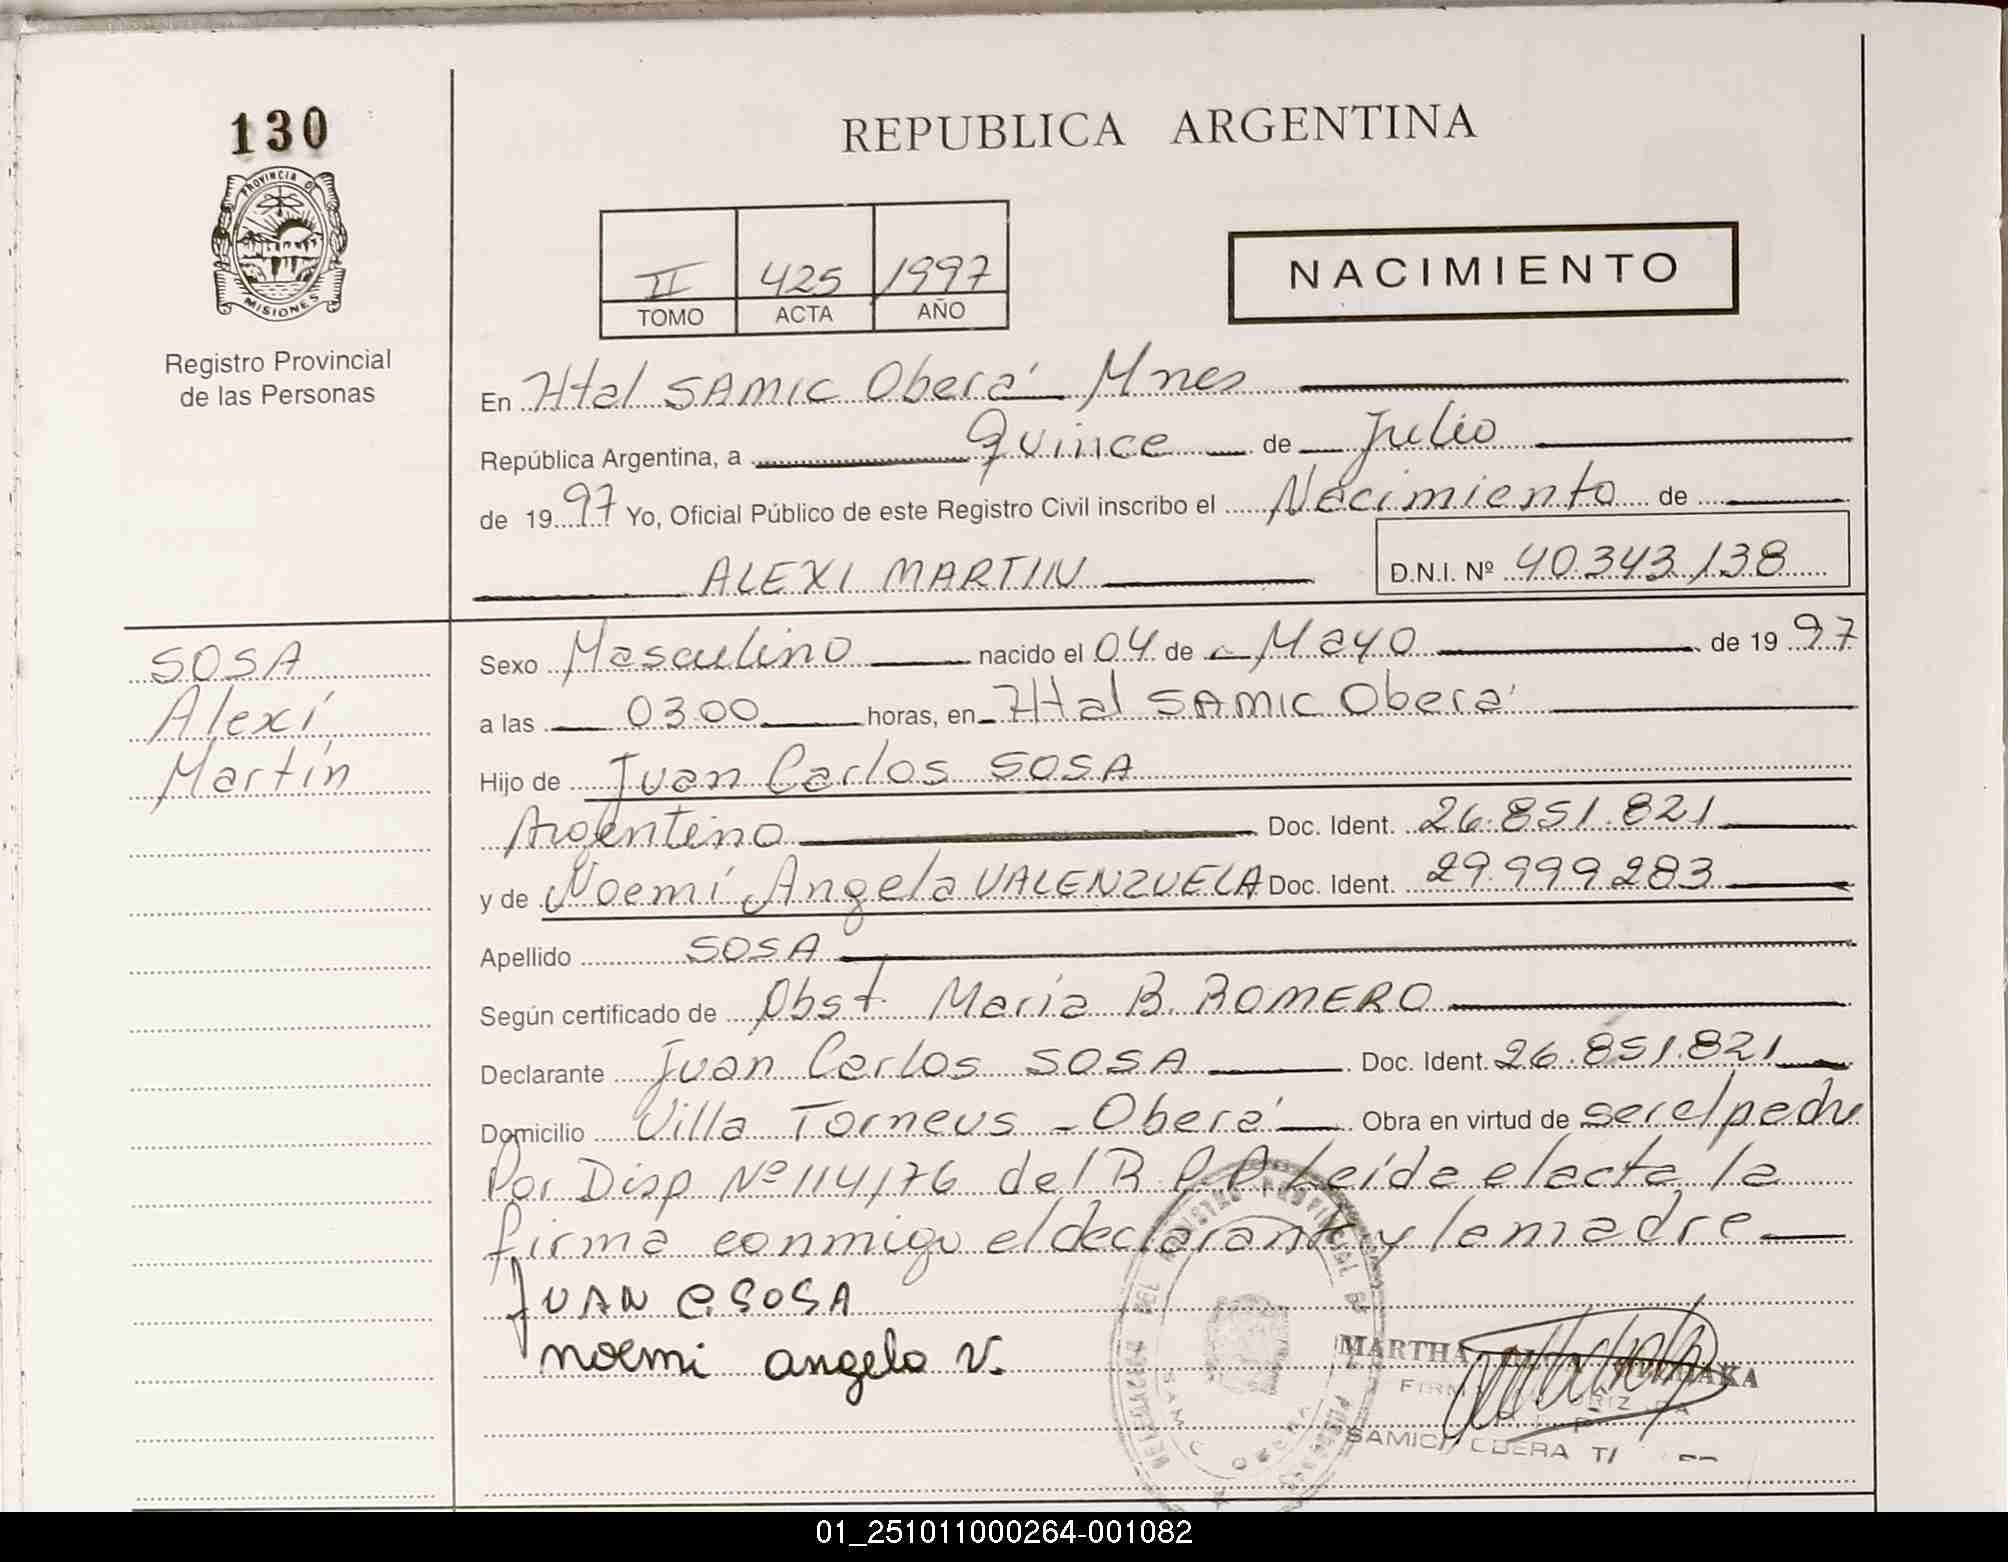 130
PROVINCIA DE
MISIONES
Registro Provincial
de las Personas
REPUBLICA ARGENTINA
II 425 1997
TOMO ACTA AÑO
NACIMIENTO
En Htal SAMIC Oberá Mnes
República Argentina, a Quince de Julio
de 1997 Yo, Oficial Público de este Registro Civil inscribo el Nacimiento de
ALEXI MARTIN D.N.I. Nº 40.343.138
SOSA
Alexi
Martín
Sexo Masculino nacido el 04 de Mayo de 1997
a las 03.00 horas, en Htal SAMIC Oberá
Hijo de Juan Carlos SOSA
Argentino Doc. Ident. 26.851.821
y de Noemí Angela VALENZUELA Doc. Ident. 29.999.283
Apellido SOSA
Según certificado de Obst. María B. ROMERO
Declarante Juan Carlos SOSA Doc. Ident. 26.851.821
Domicilio Villa Torneus - Oberá Obra en virtud de ser el padre
Por Disp Nº 114/76 del R.P.P. Leída el acta la
firma conmigo el declarante y la madre
JUAN C. SOSA
noemi angela V.
MARTHA
SAMIC OBERA
01_251011000264-001082